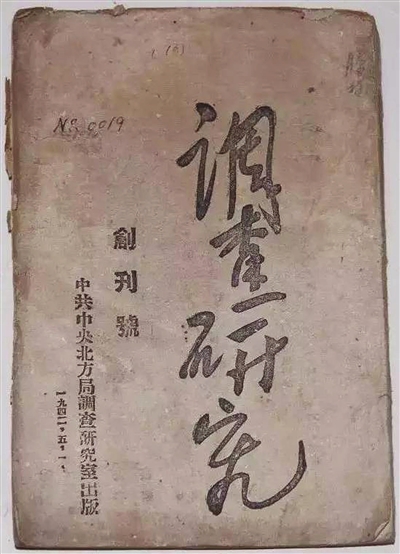 調查研究
創刊號
中共中央北方局調查研究室出版
一九四二·五·一·
№ 0019